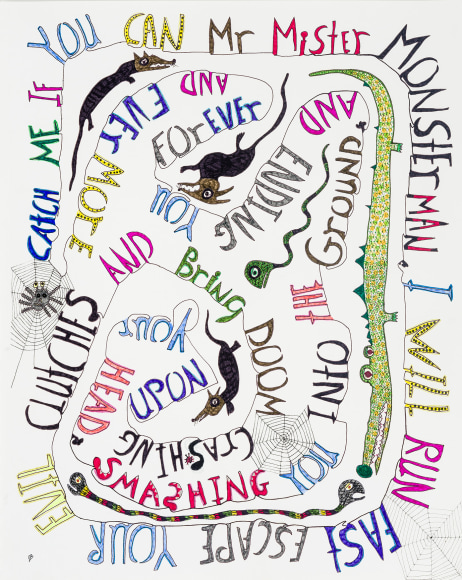 CATCH ME IF
YOU CAN Mr Mister
MONSTER MAN, I WILL RUN
FAST, ESCAPE YOUR
EVIL CLUTCHES
AND Bring DOOM
CRASHING
UPON YOUR
HEAD,
SMASHING YOU
INTO THE GROUND,
AND ENDING YOU
FOrEVEr AND
EVEr MORE